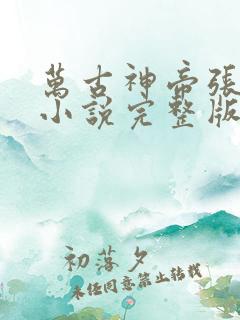 萬古神帝張
小說完整版
初落夕
未經同意禁止轉載